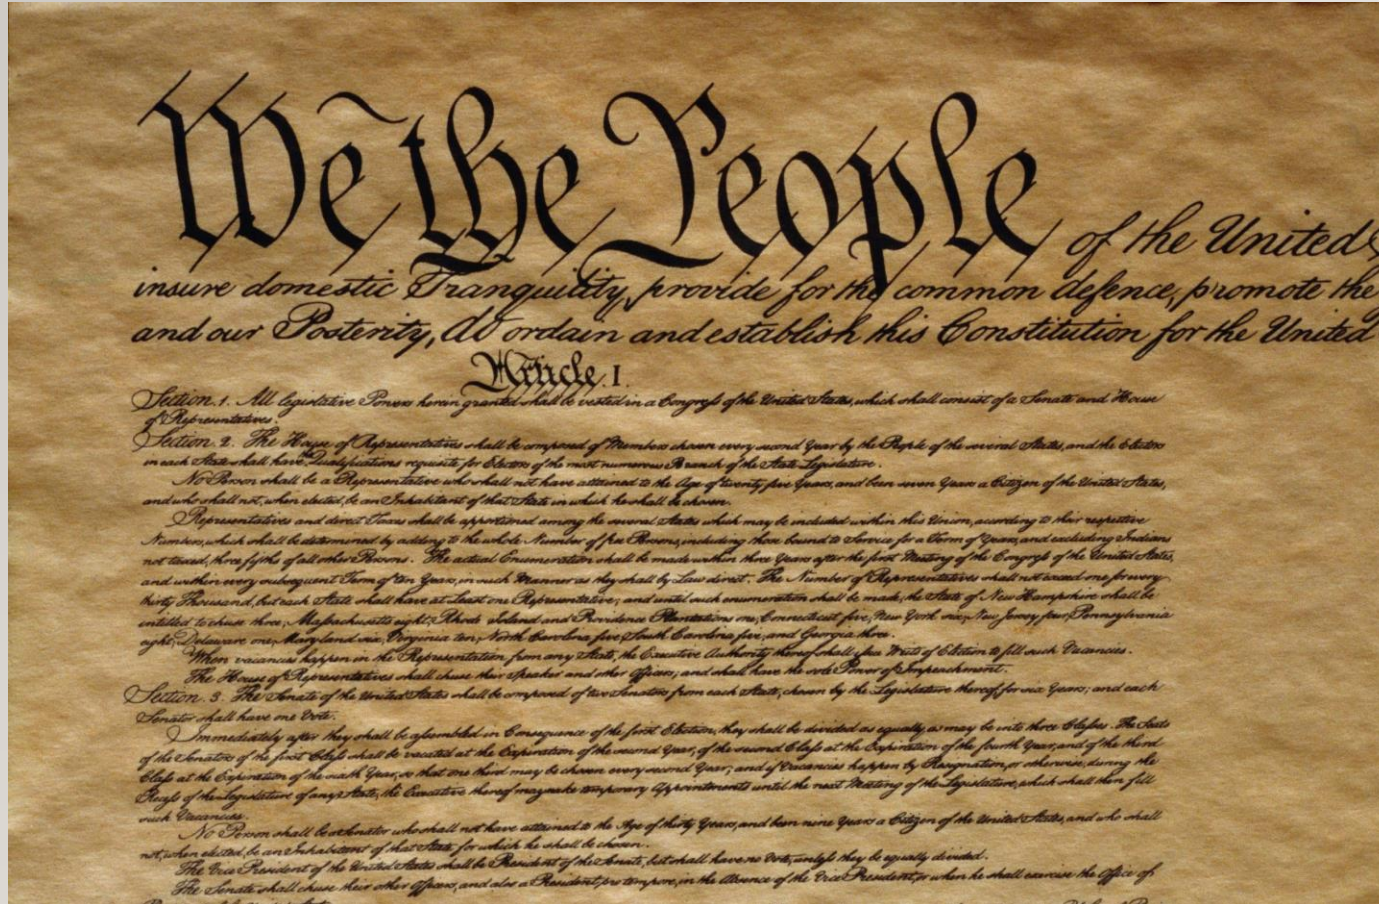 We the People of the United S
insure domestic Tranquility, provide for the common defence, promote the
and our Posterity, do ordain and establish this Constitution for the United
Article. I.
Section. 1. All legislative Powers herein granted shall be vested in a Congress of the United States, which shall consist of a Senate and House
of Representatives.
Section. 2. The House of Representatives shall be composed of Members chosen every second Year by the People of the several States, and the Electors
in each State shall have the Qualifications requisite for Electors of the most numerous Branch of the State Legislature.
No Person shall be a Representative who shall not have attained to the Age of twenty five Years, and been seven Years a Citizen of the United States,
and who shall not, when elected, be an Inhabitant of that State in which he shall be chosen.
Representatives and direct Taxes shall be apportioned among the several States which may be included within this Union, according to their respective
Numbers, which shall be determined by adding to the whole Number of free Persons, including those bound to Service for a Term of Years, and excluding Indians
not taxed, three fifths of all other Persons. The actual Enumeration shall be made within three Years after the first Meeting of the Congress of the United States,
and within every subsequent Term of ten Years, in such Manner as they shall by Law direct. The Number of Representatives shall not exceed one for every
thirty Thousand, but each State shall have at Least one Representative; and until such enumeration shall be made, the State of New Hampshire shall be
entitled to chuse three, Massachusetts eight, Rhode Island and Providence Plantations one, Connecticut five, New York six, New Jersey four, Pennsylvania
eight, Delaware one, Maryland six, Virginia ten, North Carolina five, South Carolina five, and Georgia three.
When vacancies happen in the Representation from any State, the Executive Authority thereof shall issue Writs of Election to fill such Vacancies.
The House of Representatives shall chuse their Speaker and other Officers; and shall have the sole Power of Impeachment.
Section. 3. The Senate of the United States shall be composed of two Senators from each State, chosen by the Legislature thereof, for six Years; and each
Senator shall have one Vote.
Immediately after they shall be assembled in Consequence of the first Election, they shall be divided as equally as may be into three Classes. The Seats
of the Senators of the first Class shall be vacated at the Expiration of the second Year, of the second Class at the Expiration of the fourth Year, and of the third
Class at the Expiration of the sixth Year, so that one third may be chosen every second Year; and if Vacancies happen by Resignation, or otherwise, during the
Recess of the Legislature of any State, the Executive thereof may make temporary Appointments until the next Meeting of the Legislature, which shall then fill
such Vacancies.
No Person shall be a Senator who shall not have attained to the Age of thirty Years, and been nine Years a Citizen of the United States, and who shall
not, when elected, be an Inhabitant of that State for which he shall be chosen.
The Vice President of the United States shall be President of the Senate, but shall have no Vote, unless they be equally divided.
The Senate shall chuse their other Officers, and also a President pro tempore, in the Absence of the Vice President, or when he shall exercise the Office of